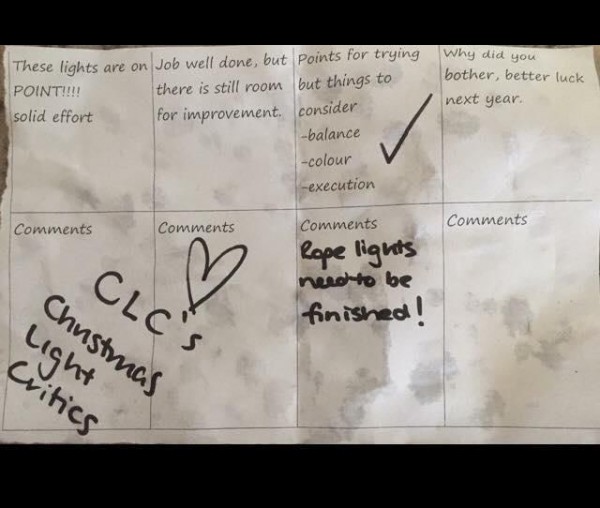 These lights are on
POINT!!!!
solid effort
Job well done, but
there is still room
for improvement.
Points for trying
but things to
consider
-balance
-colour
-execution
Why did you
bother, better luck
next year.
Comments
CLC's
Christmas
Light
Critics
Comments
Comments
Rope lights
need to be
finished!
Comments